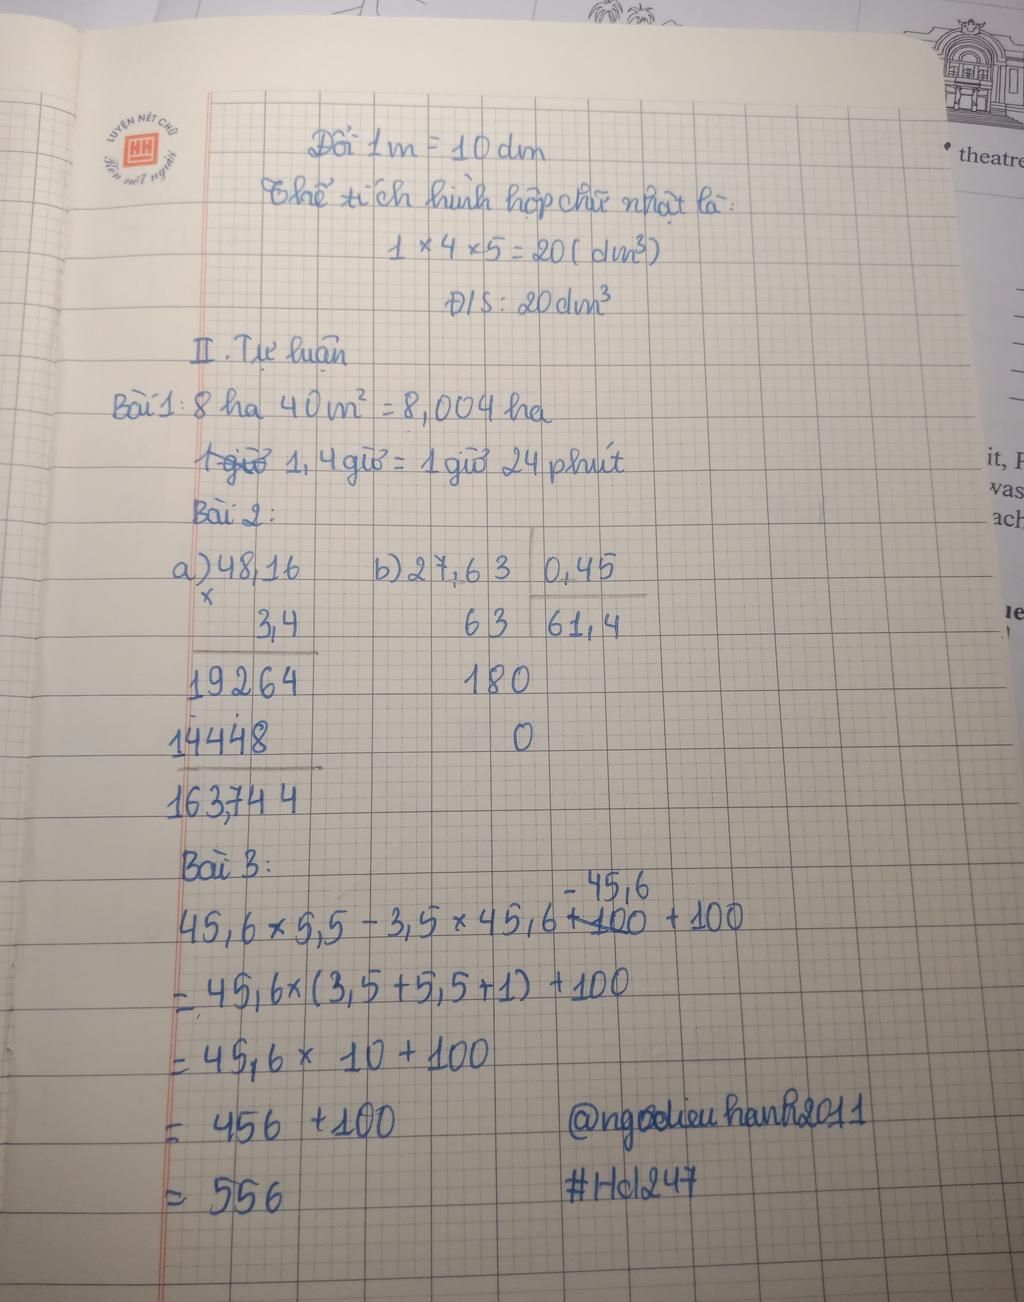 LUYỆN NÉT CHỮ
HH
Rèn nết người
theatre
Đổi 1m = 10 dm
Thể tích hình hộp chữ nhật là:
1 × 4 × 5 = 20 ( dm³)
Đ/S: 20 dm³
II. Tự luận
Bài 1: 8 ha 40 m² = 8,004 ha
1 giờ 1,4 giờ = 1 giờ 24 phút
Bài 2:
a) 48,16 b) 27,63 0,45
×
3,4 63 61,4
19264 180
14448 0
163,744
Bài 3:
- 45,6
45,6 × 5,5 - 3,5 × 45,6 +100 + 100
= 45,6 × (3,5 + 5,5 + 1) + 100
= 45,6 × 10 + 100
= 456 + 100
= 556
@ngocdieuhanh2011
#Hd247
it,
was